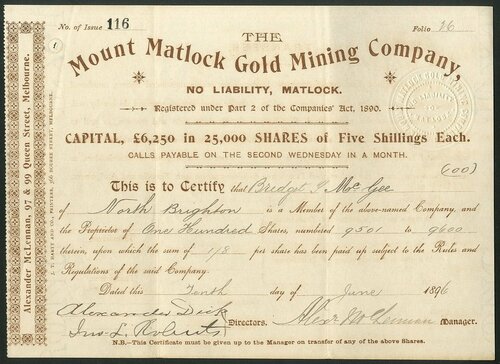 No. of Issue 116
Folio 26
THE
Mount Matlock Gold Mining Company,
NO LIABILITY, MATLOCK.
Registered under Part 2 of the Companies' Act, 1890.
CAPITAL, £6,250 in 25,000 SHARES of Five Shillings Each.
CALLS PAYABLE ON THE SECOND WEDNESDAY IN A MONTH.
(100)
This is to Certify that Bridget P. McGee
of North Brighton is a Member of the above-named Company, and
the Proprietor of One Hundred Shares, numbered 9501 to 9600
therein, upon which the sum of 1/8 per share has been paid up subject to the Rules and
Regulations of the said Company.
Dated this Tenth day of June 1896
Alexander Dick
Jno. L. Roberts
Directors.
Alexr McLennan
Manager.
N.B.—This Certificate must be given up to the Manager on transfer of any of the above Shares.
Alexander McLennan, 97 & 99 Queen Street, Melbourne.